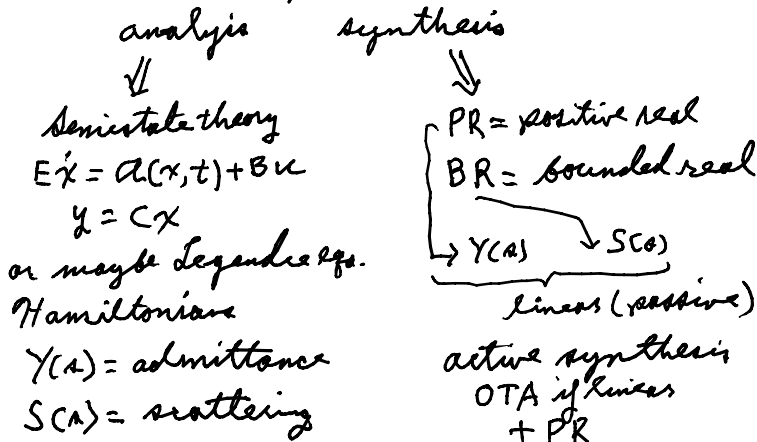 analysis
⇓
Semistate theory
Eẋ = A(x,t) + Bu
y = Cx
or maybe Legendre eqs.
Hamiltonians
Y(s) = admittance
S(s) = scattering
synthesis
⇓
PR = positive real
BR = bounded real
→ Y(s) S(s)
linear (passive)
active synthesis
OTA if linear
+ PR